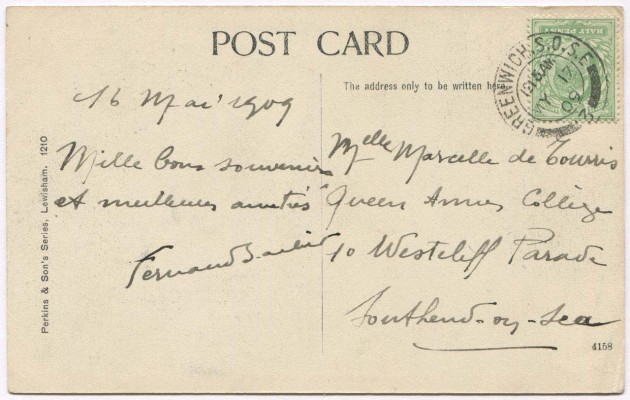 POST CARD
The address only to be written here
HALF PENNY
GREENWICH. S.O. S.E.
12.15 AM
MY 17
09
16 Mai 1909
Mille bons souvenirs
et meilleures amitiés
Fernand
Melle Marcelle de Tourris
Queen Annes College
10 Westcliff Parade
Southend-on-Sea
Perkins & Son's Series, Lewisham. 1210
4158